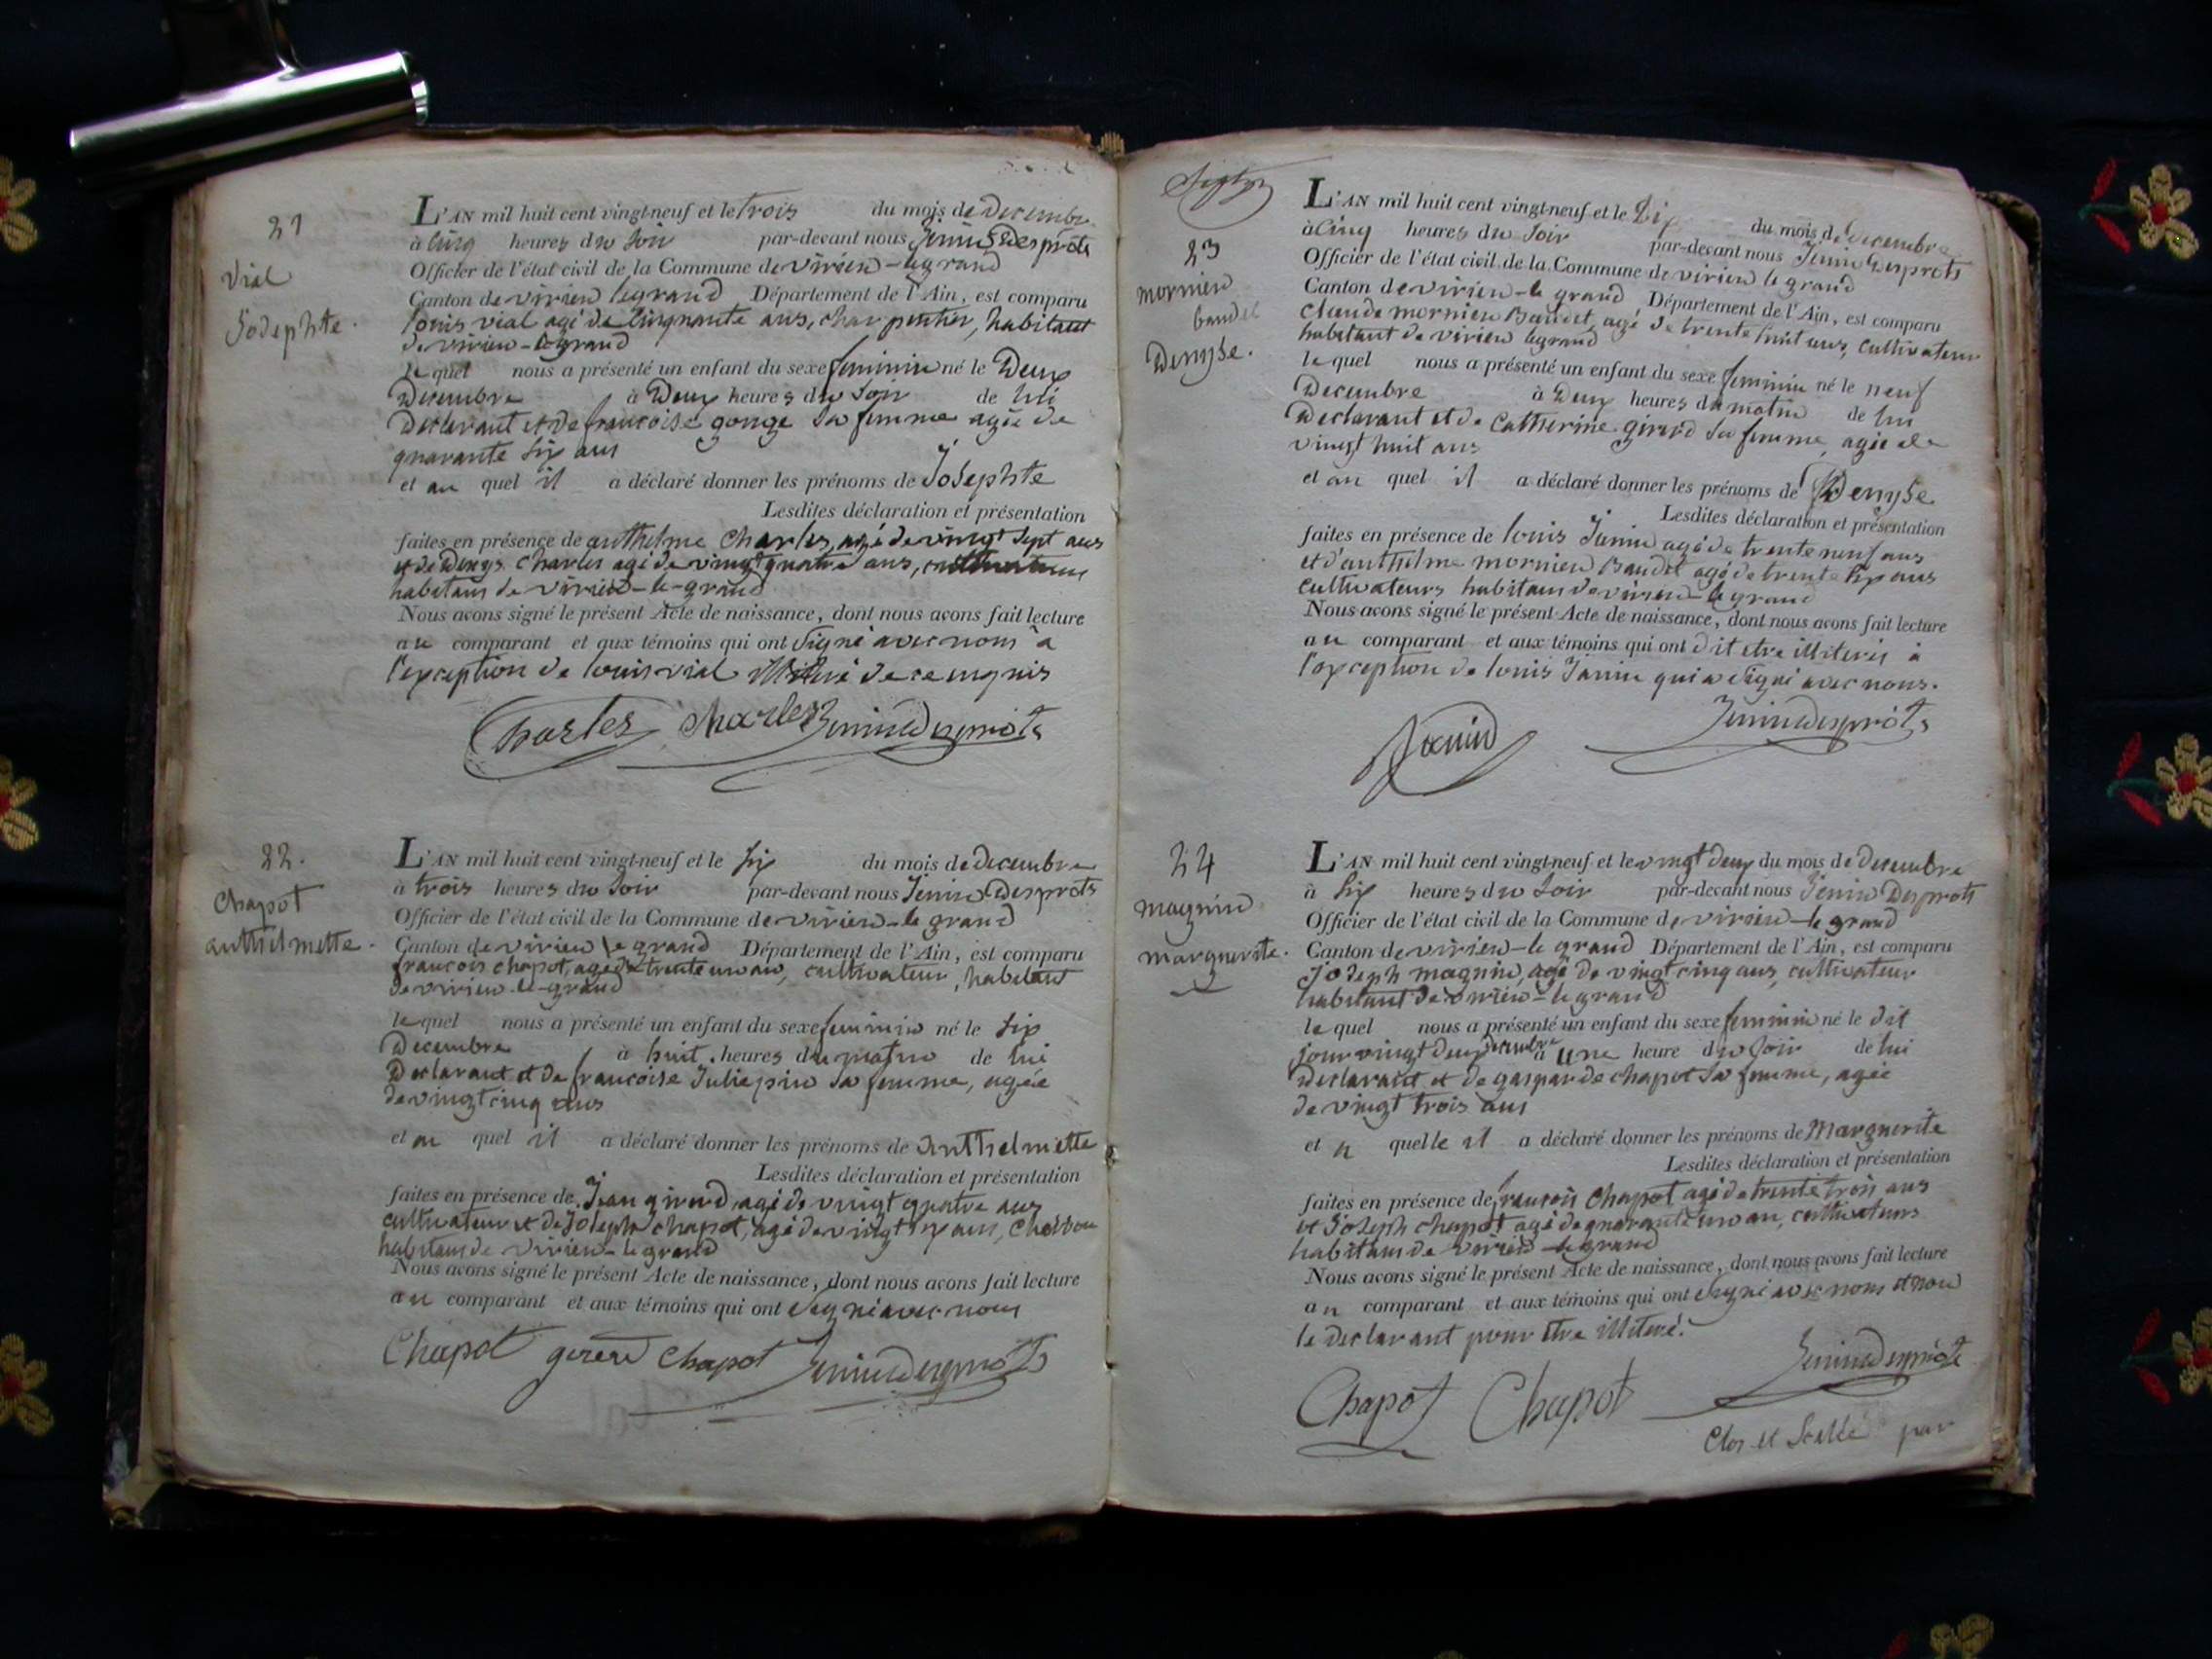 21
Vial
Josephte.
L'AN mil huit cent vingt-neuf et le trois du mois de Decembre
à cinq heures du soir par-devant nous Jenin Desprots
Officier de l'état civil de la Commune de virieu-legrand
Canton de virieu legrand Département de l'Ain, est comparu
louis vial agé de cinquante ans, charpentier, habitant
de virieu-legrand
lequel nous a présenté un enfant du sexe feminin né le Deux
Decembre à Deux heures du soir de lui
Declarant et de francoise gouge sa femme agée de
quarante six ans
et au quel il a déclaré donner les prénoms de Josephte
Lesdites déclaration et présentation
faites en présence de anthelme Charles, agé de vingt sept ans
et de Denys Charles agé de vingt quatre ans, cultivateurs
habitans de virieu-le-grand
Nous avons signé le présent Acte de naissance, dont nous avons fait lecture
au comparant et aux témoins qui ont signé avec nous à
l'exception de louis vial illiteré de ce enquis
Charles Charles Jenin Desprots
22.
Chapot
anthelmette.
L'AN mil huit cent vingt-neuf et le six du mois de decembre
à trois heures du soir par-devant nous Jenin Desprots
Officier de l'état civil de la Commune de virieu-le grand
Canton de virieu le grand Département de l'Ain, est comparu
francois chapot, agé de trente un an, cultivateur, habitant
de virieu-le-grand
lequel nous a présenté un enfant du sexe feminin né le six
Decembre à huit heures du matin de lui
Declarant et de francoise Juliepin sa femme, agée
de vingt cinq ans
et au quel il a déclaré donner les prénoms de Anthelmette
Lesdites déclaration et présentation
faites en présence de Jean girerd agé de vingt quatre ans
cultivateur et de Joseph chapot, agé de vingt six ans,
habitans de virieu-legrand
Nous avons signé le présent Acte de naissance, dont nous avons fait lecture
au comparant et aux témoins qui ont signé avec nous
Chapot girerd Chapot Jenin Desprots
23
mornieu
baudet
Denyse.
L'AN mil huit cent vingt-neuf et le Dix du mois de Decembre
à cinq heures du soir par-devant nous Jenin Desprots
Officier de l'état civil de la Commune de virieu le grand
Canton de virieu-le grand Département de l'Ain, est comparu
claude mornieu Baudet, agé de trente huit ans, cultivateur
habitant de virieu legrand
lequel nous a présenté un enfant du sexe feminin né le neuf
Decembre à Deux heures du matin de lui
Declarant et de Catherine girerd sa femme, agée de
vingt huit ans
et au quel il a déclaré donner les prénoms de Denyse.
Lesdites déclaration et présentation
faites en présence de louis Janin agé de trente neuf ans
et d'anthelme mornieu Baudet agé de trente six ans
cultivateurs habitans de virieu-le grand
Nous avons signé le présent Acte de naissance, dont nous avons fait lecture
au comparant et aux témoins qui ont dit etre illiterés à
l'exception de louis Janin qui a signé avec nous.
Janin Jenin Desprots
24
magnin
marguerite.
L'AN mil huit cent vingt-neuf et le vingt deux du mois de Decembre
à six heures du soir par-devant nous Jenin Desprots
Officier de l'état civil de la Commune de virieu-le grand
Canton de virieu-le grand Département de l'Ain, est comparu
joseph magnin, agé de vingt cinq ans, cultivateur
habitant de virieu-le grand
lequel nous a présenté un enfant du sexe feminin né le dit
jour vingt deux decembre à une heure du soir de lui
declarant et de gasparde chapot sa femme, agée
de vingt trois ans
et a quelle il a déclaré donner les prénoms de Marguerite
Lesdites déclaration et présentation
faites en présence de francois Chapot agé de trente trois ans
et Joseph chapot agé de quarante un an, cultivateurs
habitans de virieu-legrand
Nous avons signé le présent Acte de naissance, dont nous avons fait lecture
au comparant et aux témoins qui ont signé avec nous et non
le declarant pour etre illiteré.
Chapot Chapot Jenin Desprots
Clos et scellé par